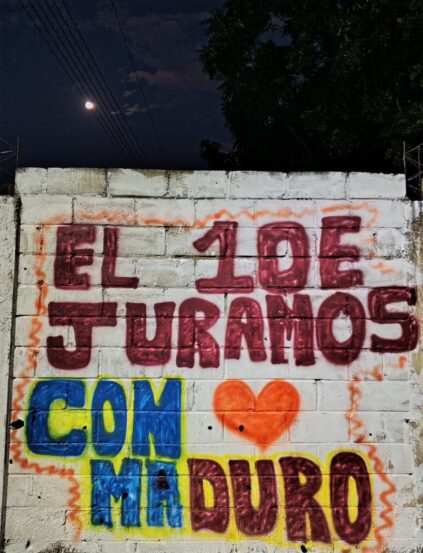 EL 1 DE
JURAMOS
CON
MADURO